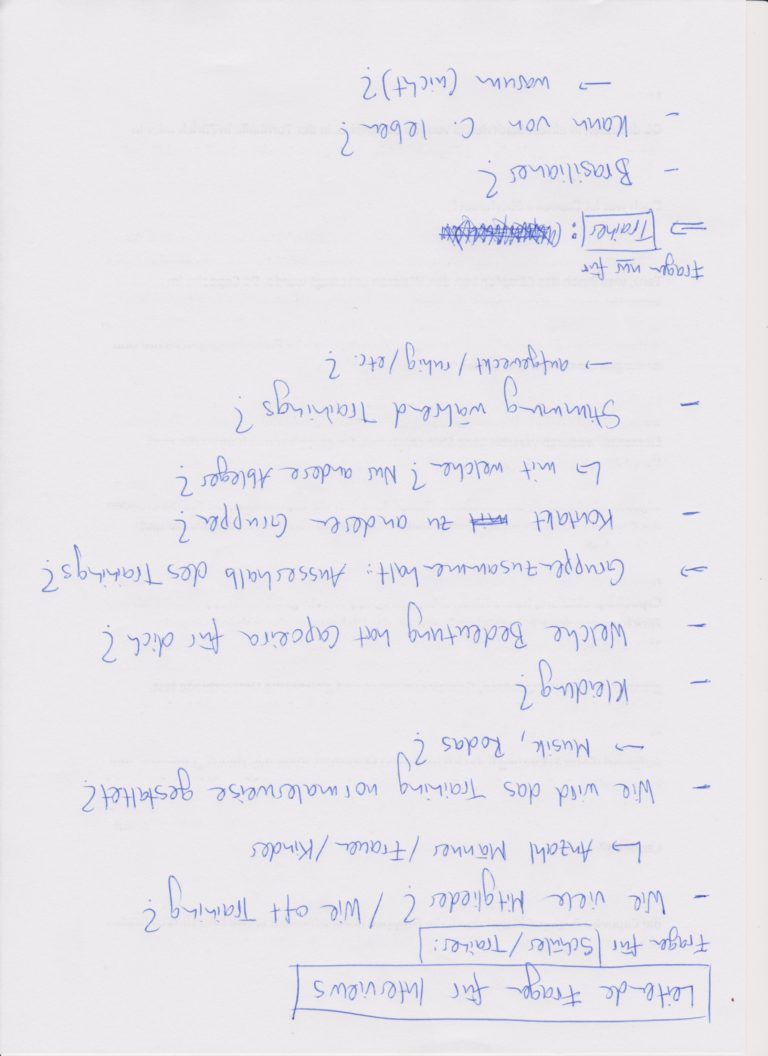 Leitende Fragen für Interviews
Fragen für Schüler/Trainer:
- Wie viele Mitglieder? / Wie oft Training?
↳ Anzahl Männer/Frauen/Kinder
- Wie wird das Training normalerweise gestaltet?
→ Musik, Rodas?
- Kleidung?
- Welche Bedeutung hat Capoeira für dich?
→ Gruppenzusammenhalt: Ausserhalb des Trainings?
- Kontakt mit zu anderen Gruppen?
↳ mit welchen? Nur andere Ableger?
- Stimmung während Trainings?
→ aufgeweckt/ruhig/etc.?
Fragen nur für
⇒ Trainer: (
- Brasilianer?
- Kann von C. leben?
→ warum (nicht)?